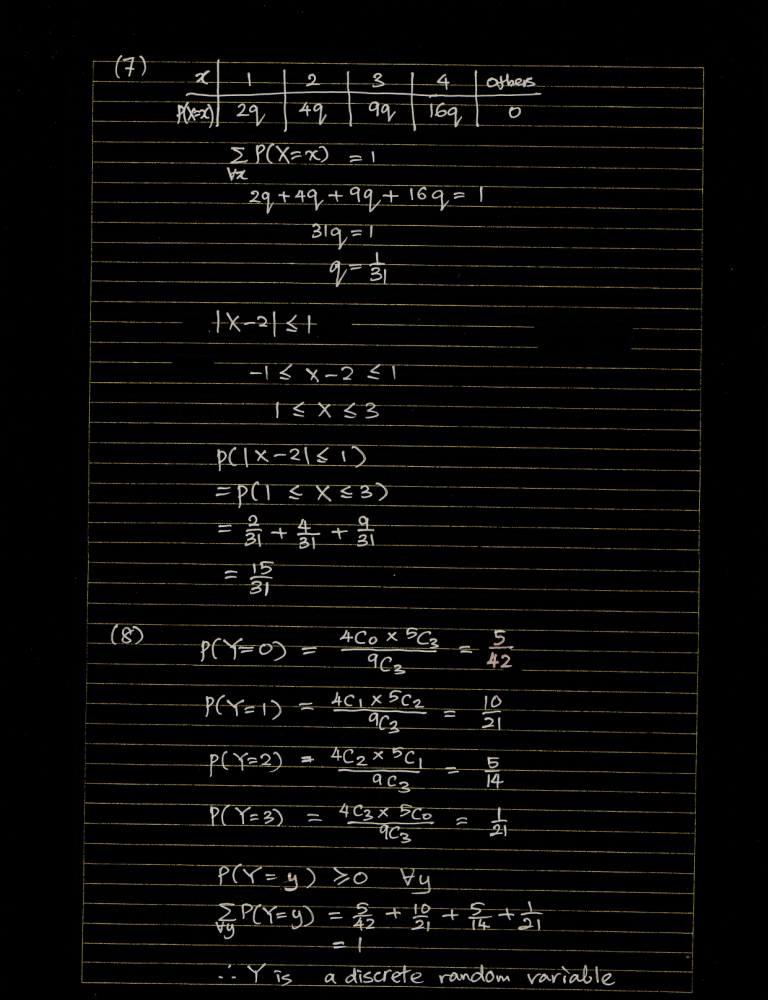 (7) x | 1 | 2 | 3 | 4 | others
P(X=x) | 2q | 4q | 9q | 16q | 0
∑ P(X=x) = 1
∀x
2q+4q+9q+16q = 1
31q = 1
q = 1/31
|X-2| ≤ 1
-1 ≤ X-2 ≤ 1
1 ≤ X ≤ 3
P(|X-2| ≤ 1)
= P(1 ≤ X ≤ 3)
= 2/31 + 4/31 + 9/31
= 15/31
(8) P(Y=0) = (4C0 × 5C3)/9C3 = 5/42
P(Y=1) = (4C1 × 5C2)/9C3 = 10/21
P(Y=2) = (4C2 × 5C1)/9C3 = 5/14
P(Y=3) = (4C3 × 5C0)/9C3 = 1/21
P(Y=y) ≥ 0 ∀y
∑ P(Y=y) = 5/42 + 10/21 + 5/14 + 1/21
∀y
= 1
∴ Y is a discrete random variable